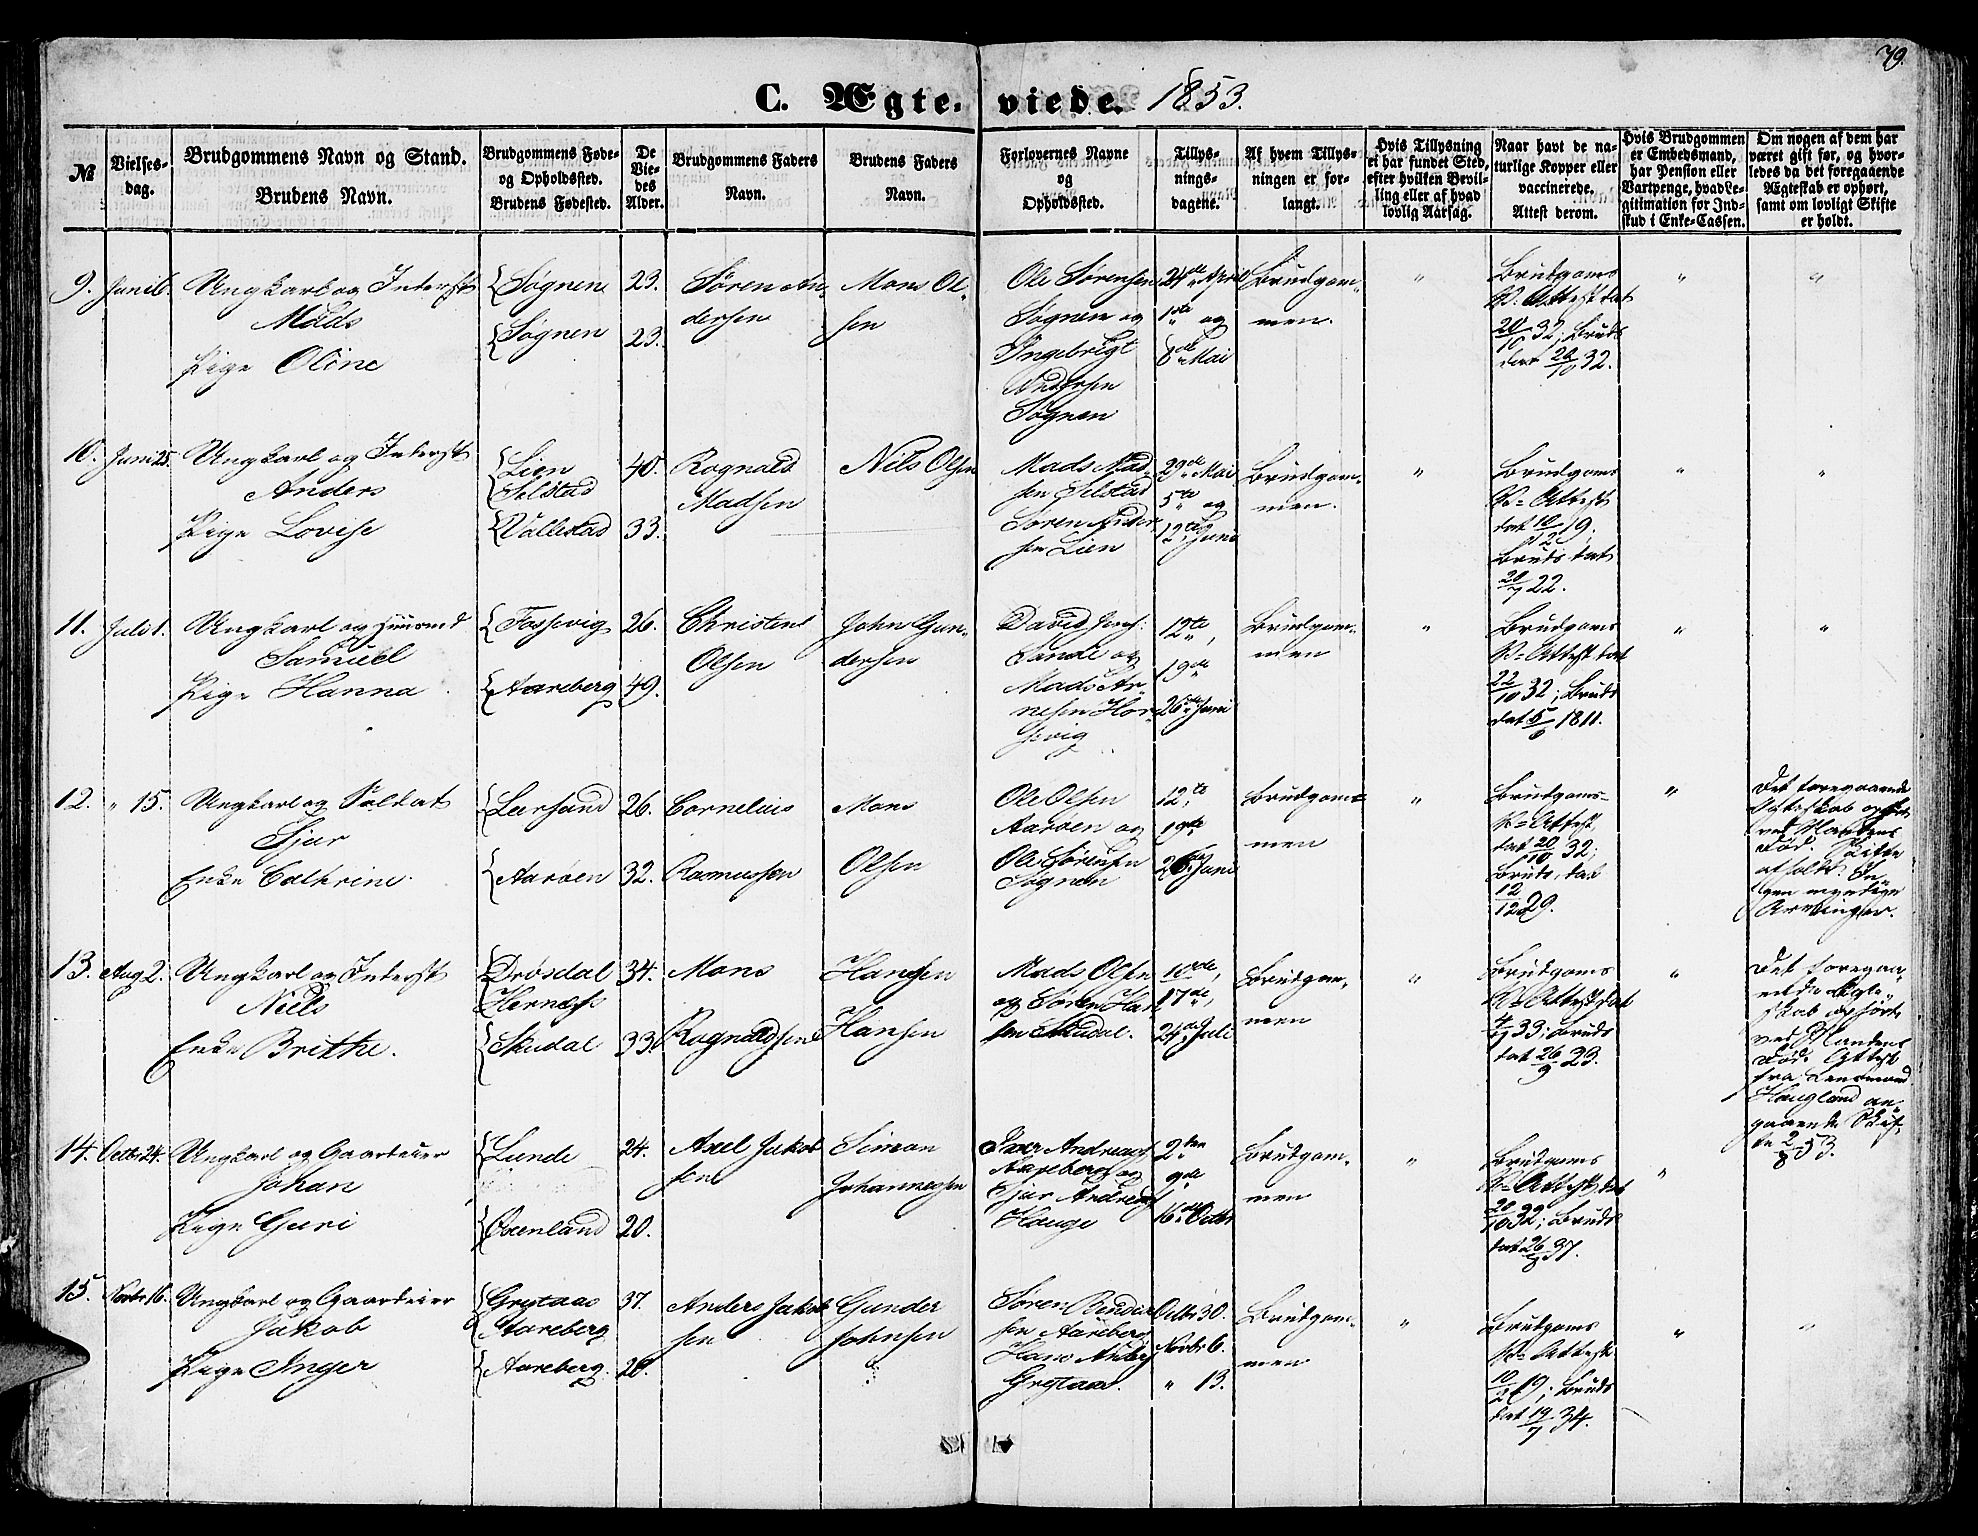 79.
C. Ægte-viede. 1853.
№
Vielses-dag.
Brudgommens Navn og Stand.
Brudens Navn.
Brudgommens Føde- og Opholdssted.
Brudens Fødested.
De Viedes Alder.
Brudgommens Faders Navn.
Brudens Faders Navn.
Forlovernes Navne og Opholdssted.
Tillysningsdagene.
Af hvem Tillysningen er forlangt.
Hvis Tillysning ei har fundet Sted, efter hvilken Bevilling eller af hvad lovlig Aarsag.
Naar havt de naturlige Kopper eller vaccinerede. Attest derom.
Hvis Brudgommen er Embedsmand, har Pension eller Vartpenge, hvad Legitimation for Indskud i Enke-Cassen.
Om nogen af dem har været gift før, og hvorledes da det foregaaende Ægteskab er ophørt, samt om lovligt Skifte er holdt.
9. Juni 16. Ungkarl og Inderst Mads
Pige Oline
Søgnen 23.
Søgnen 23.
Søren Andersen
Mons Olsen
Ole Sørensen Søgnen og Ingebrigt Andersen Søgnen
24de April 1ste og 8de Mai
Brudgommen.
" Brudgoms V. Attest dat 20/10 32; Bruds dat 20/10 32. " "
10. Juni 25. Ungkarl og Inderst Anders
Pige Lovise
Lien Selstad 40.
Vallestad 33.
Rognald Madsen
Nils Olsen
Mads Madsen Selstad Søren Andersen Lien
29de Mai 5te og 12te Juni
Brudgommen.
" Brudgoms V-Attest dat 19; Bruds dat 22. " "
11. Juli 1. Ungkarl og Huusmd Samuel
Pige Hanna
Fossevig 26.
Aareberg 49.
Christen Olsen
John Gundersen
David Jens: Sande og Mads Arnesen
12te, 19de 26de Juni
Brudgommen
" Brudgoms V-Attest dat 22/10 32; Bruds dat 1811. " "
12. " 15. Ungkarl og Soldat Sjur
Enke Cathrine.
Leersund 26.
Aarøen 32.
Cornelius Rasmussen
Mons Olsen
Ole Olsen Aarøen og Ole Sørensen Søgnen
12te 19de 26de Juni
Brudgommen
" Brudgoms V-Attest dat 20/10 32; Bruds, dat 12/12 29. "
Det foregaaende Ægteskab ophørt ved Mandens Død. Skifte afholdt. Ingen myndige Arvinger.
13. Aug 2. Ungkarl og Inderst Niels
Enke Brithe.
Drøsdal Hernæss 34.
Skudal 33.
Mons Rognaldsen
Hansen Hansen
Mads Olsen og Søren Hansen Skudal.
10de, 17de, 24de Juli
Brudgommen
" Brudgoms V-Attest, dat 33; Bruds dat 26/9 23. "
Det foregaaende Ægteskab ophørt ved Mandens Død. Attest fra Lensmand Haugland angaaende Skifte 2/8 53.
14. Octbr 24. Ungkarl og Gaardeier Johan
Pige Guri
Lunde 24.
Øxenland 20.
Axel Jakobsen
Simon Johannessen
Iver Andreas: Aareberg og Sjur Andreas: Hauge
2den 9de 16de Octbr
Brudgommen
" Brudgoms V-Attest, dat 20/10 32; Bruds dat 37. "
15. Novbr 16. Ungkarl og Gaardeier Jakob
Pige Inger
Grytaas Aareberg 37.
Aareberg. 26.
Anders Jakobsen
Gunder Johnsen
Søren Aareberg Hans Grytaas.
Octbr 30. Novbr 6. " 13.
Brudgommen
" Brudgoms V-Attest 19; Bruds dat 19/7 34. " "